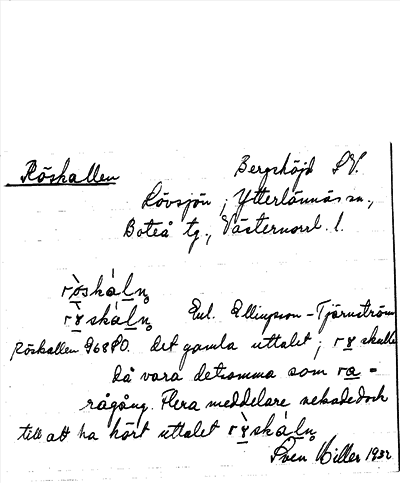 Röskallen
Bergshöjd S.V.
Lövsjön, Ytterlännäs sn.,
Boteå tg., Västernorrl. l.
rö̀skáln̥
rỳskáln̥ Enl. Ellingson-Tjärnström
Röskallen det gamla uttalet; ry skulle
då vara detsamma som ra =
rågång. Flera meddelare nekade dock
till att ha hört uttalet rỳskáln̥
Sven Hiller 1932